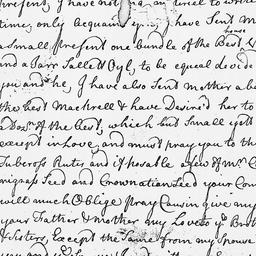 present, I have not an
time, only Acquaint you, I have Sent M
house
a Small Present one bundle of the Best
and a Jarr Sallett Oyl, to be equal devide
you and he, I have also Sent Mother a b
the best Mackrell & have Desired her to
a Doz.n of the best, which but Small yett
except in Love, and must pray you to th
Tuberoses Rutes and if posable a few of Mr. C
Seed and Crownation Seed your Com
will much Oblige Pray Cousin give my
your Father & Mother my Loves to yr. Brot
& Sisters, Except the Same from my Spouse
you and